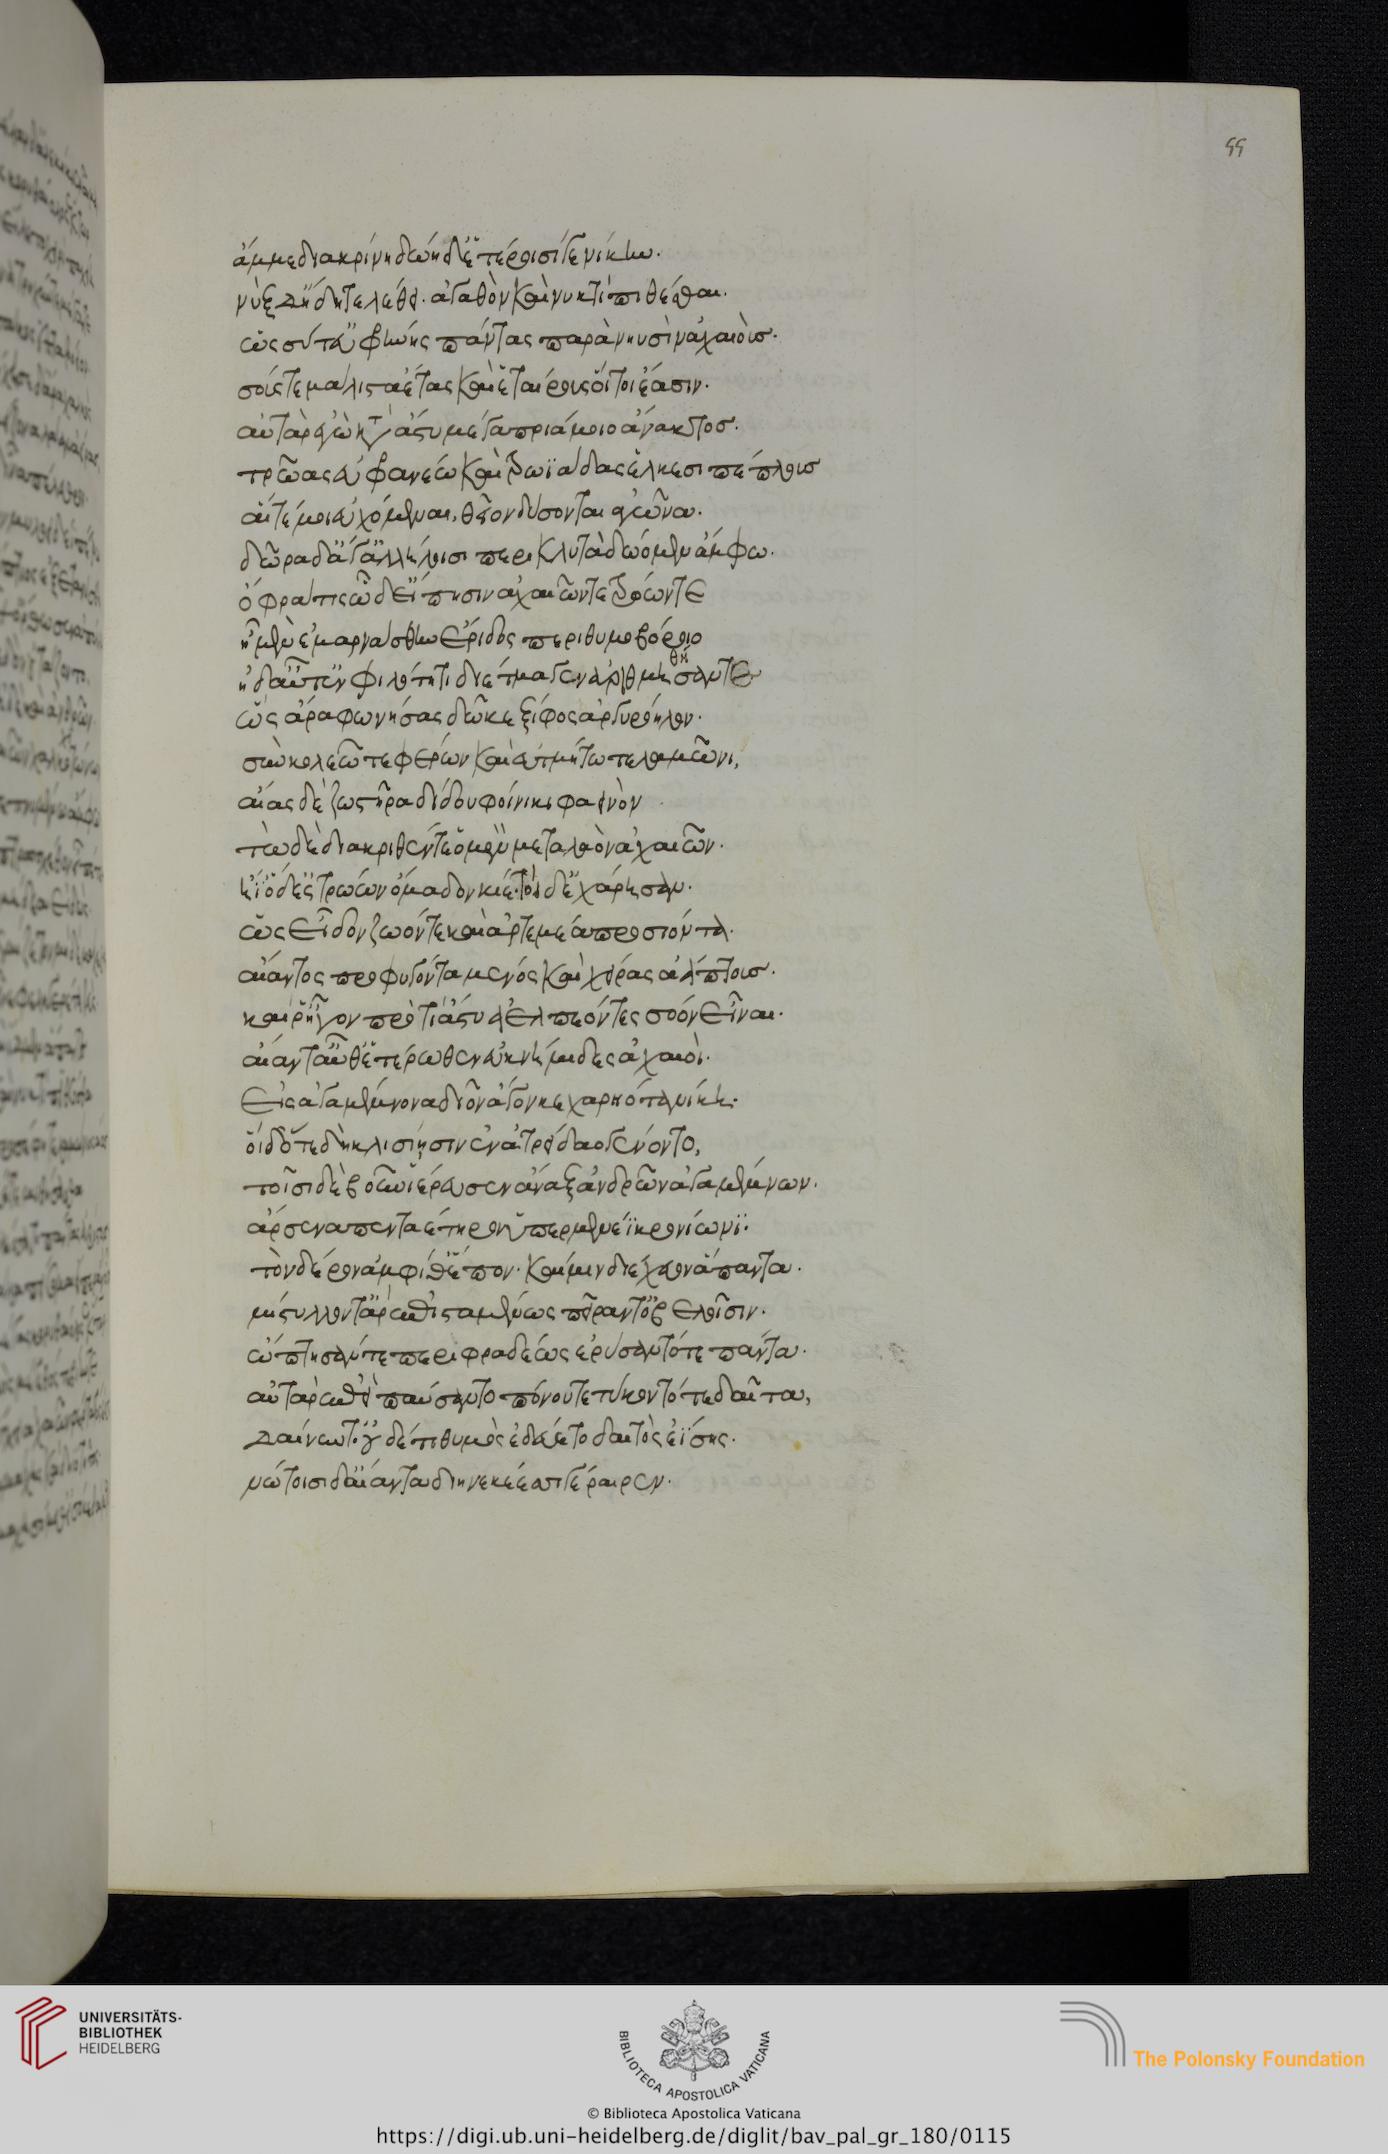 55
ἄμμε διακρίνη δώη δ' ἑτέροισί γε νίκην.
νὺξ δ' ἤδη τελέθει. ἀγαθὸν καὶ νυκτὶ πιθέσθαι.
ὡς σύ τ' εὐφρήνης πάντας παρὰ νηυσὶν ἀχαιοὺς.
σούς τε μάλιστα ἔτας καὶ ἑταίρους οἵ τοι ἔασιν.
αὐτὰρ ἐγὼ κατὰ ἄστυ μέγα πριάμοιο ἄνακτος.
τρῶας εὐφρανέω καὶ τρωϊάδας ἑλκεσιπέπλους
αἵ τέ μοι εὐχόμεναι, θεῖον δύσονται ἀγῶνα.
δῶρα δ' ἄγ' ἀλλήλοισι περικλυτὰ δώομεν ἄμφω.
ὄφρα τις ὧδ' εἴπησιν ἀχαιῶν τε τρώων τε
ἠμὲν ἐμαρνάσθην ἔριδος περὶ θυμοβόροιο
ἠδ' αὖτ' ἐν φιλότητι διέτμαγεν ἀρθμήσαντε
θή
ὣς ἄρα φωνήσας δῶκε ξίφος ἀργυρόηλον.
σὺν κολεῷ τε φέρων καὶ ἐυτμήτῳ τελαμῶνι,
αἴας δὲ ζωστῆρα δίδου φοίνικι φαεινὸν
τὼ δὲ διακρινθέντε ὁ μὲν μετὰ λαὸν ἀχαιῶν.
ἤϊ' ὁ δ' ἐς τρώων ὅμαδον κίε. τοὶ δ' ἐχάρησαν.
ὡς εἶδον ζωόν τε καὶ ἀρτεμέα προσιόντα.
αἴαντος προφυγόντα μένος καὶ χεῖρας ἀάπτους.
καί ῥ' ἦγον προτὶ ἄστυ ἀελπέοντες σόον εἶναι.
αἴαντ' αὖθ' ἑτέρωθεν ἐυκνήμιδες ἀχαιοὶ.
εἰς ἀγαμέμνονα δῖον ἄγον κεχαρηότα νίκῃ.
οἱ δ' ὅτε δὴ κλισίῃσιν ἐν ἀτρείδαο γένοντο,
τοῖσι δὲ βοῦν ἱέρευσεν ἄναξ ἀνδρῶν ἀγαμέμνων.
ἄρσενα πενταέτηρον ὑπερμενέϊ κρονίωνι.
τὸν δέρον ἀμφί θ' ἕπον. καί μιν διέχευαν ἅπαντα.
μίστυλλόν τ' ἄρ' ἐπισταμένως πεῖράν τ' ὀβελοῖσιν.
ὤπτησάν τε περιφραδέως ἐρύσαντό τε πάντα.
αὐτὰρ ἐπεὶ παύσαντο πόνου τετύκοντό τε δαῖτα,
δαίνυντ' οὐδέ τι θυμὸς ἐδεύετο δαιτὸς ἐΐσης.
νώτοισι δ' αἴαντα διηνεκέεσσι γέραιρεν.
UNIVERSITÄTS-
BIBLIOTHEK
HEIDELBERG
BIBLIOTECA APOSTOLICA VATICANA
The Polonsky Foundation
© Biblioteca Apostolica Vaticana
https://digi.ub.uni-heidelberg.de/diglit/bav_pal_gr_180/0115